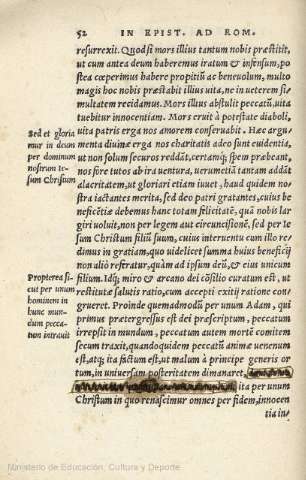 52 IN EPIST. AD ROM.
resurrexit. Quod si mors illius tantum nobis præstitit,
ut cum antea deum haberemus iratum & infensum, po
stea cœperimus habere propitiũ ac beneuolum, multo
magis hoc nobis præstabit illius uita, ne in ueterem si-
multatem recidamus. Mors illius abstulit peccatũ, uita
tuebitur innocentiam. Mors eruit à potestate diaboli,
Sed et gloria
mur in deum
per dominum
nostrum Ie-
sum Christum
uita patris erga nos amorem conseruabit. Hæc argu-
menta diuinæ erga nos charitatis adeo sunt euidentia,
ut non solum securos reddãt, certamq; spem præbeant,
nos fore tutos ab ira uentura, uerumetiã tantam addãt
alacritatem, ut gloriari etiam iuuet, haud quidem no-
stra iactantes merita, sed deo patri gratantes, cuius be
neficẽtiæ debemus hanc totam felicitatẽ, quã nobis lar
giri uoluit, non per legem aut circuncisionẽ, sed per Ie
sum Christum filiũ suum, cuius interuentu cum illo re
dimus in gratiam, quo uidelicet summa huius beneficij
non aliò referatur, quàm ad ipsum deũ, & eius unicum
Propterea si-
cut per unum
hominem in
hunc mun-
dum pecca-
tum intrauit
filium. Idq; miro & arcano dei cõsilio curatum est, ut
restitutæ salutis ratio, cum accepti exitij ratione con-
grueret. Proinde quemadmodũ per unum Adam, qui
primus prætergressus est dei præscriptum, peccatum
irrepsit in mundum, peccatum autem mortẽ comitem
secum traxit, quandoquidem peccatũ animæ uenenum
est, atq; ita factum est, ut malum à principe generis or
tum, in uniuersam posteritatem dimanaret,
ita per unum
Christum in quo renascimur omnes per fidem, innocen
tia in
Ministerio de Educación, Cultura y Deporte